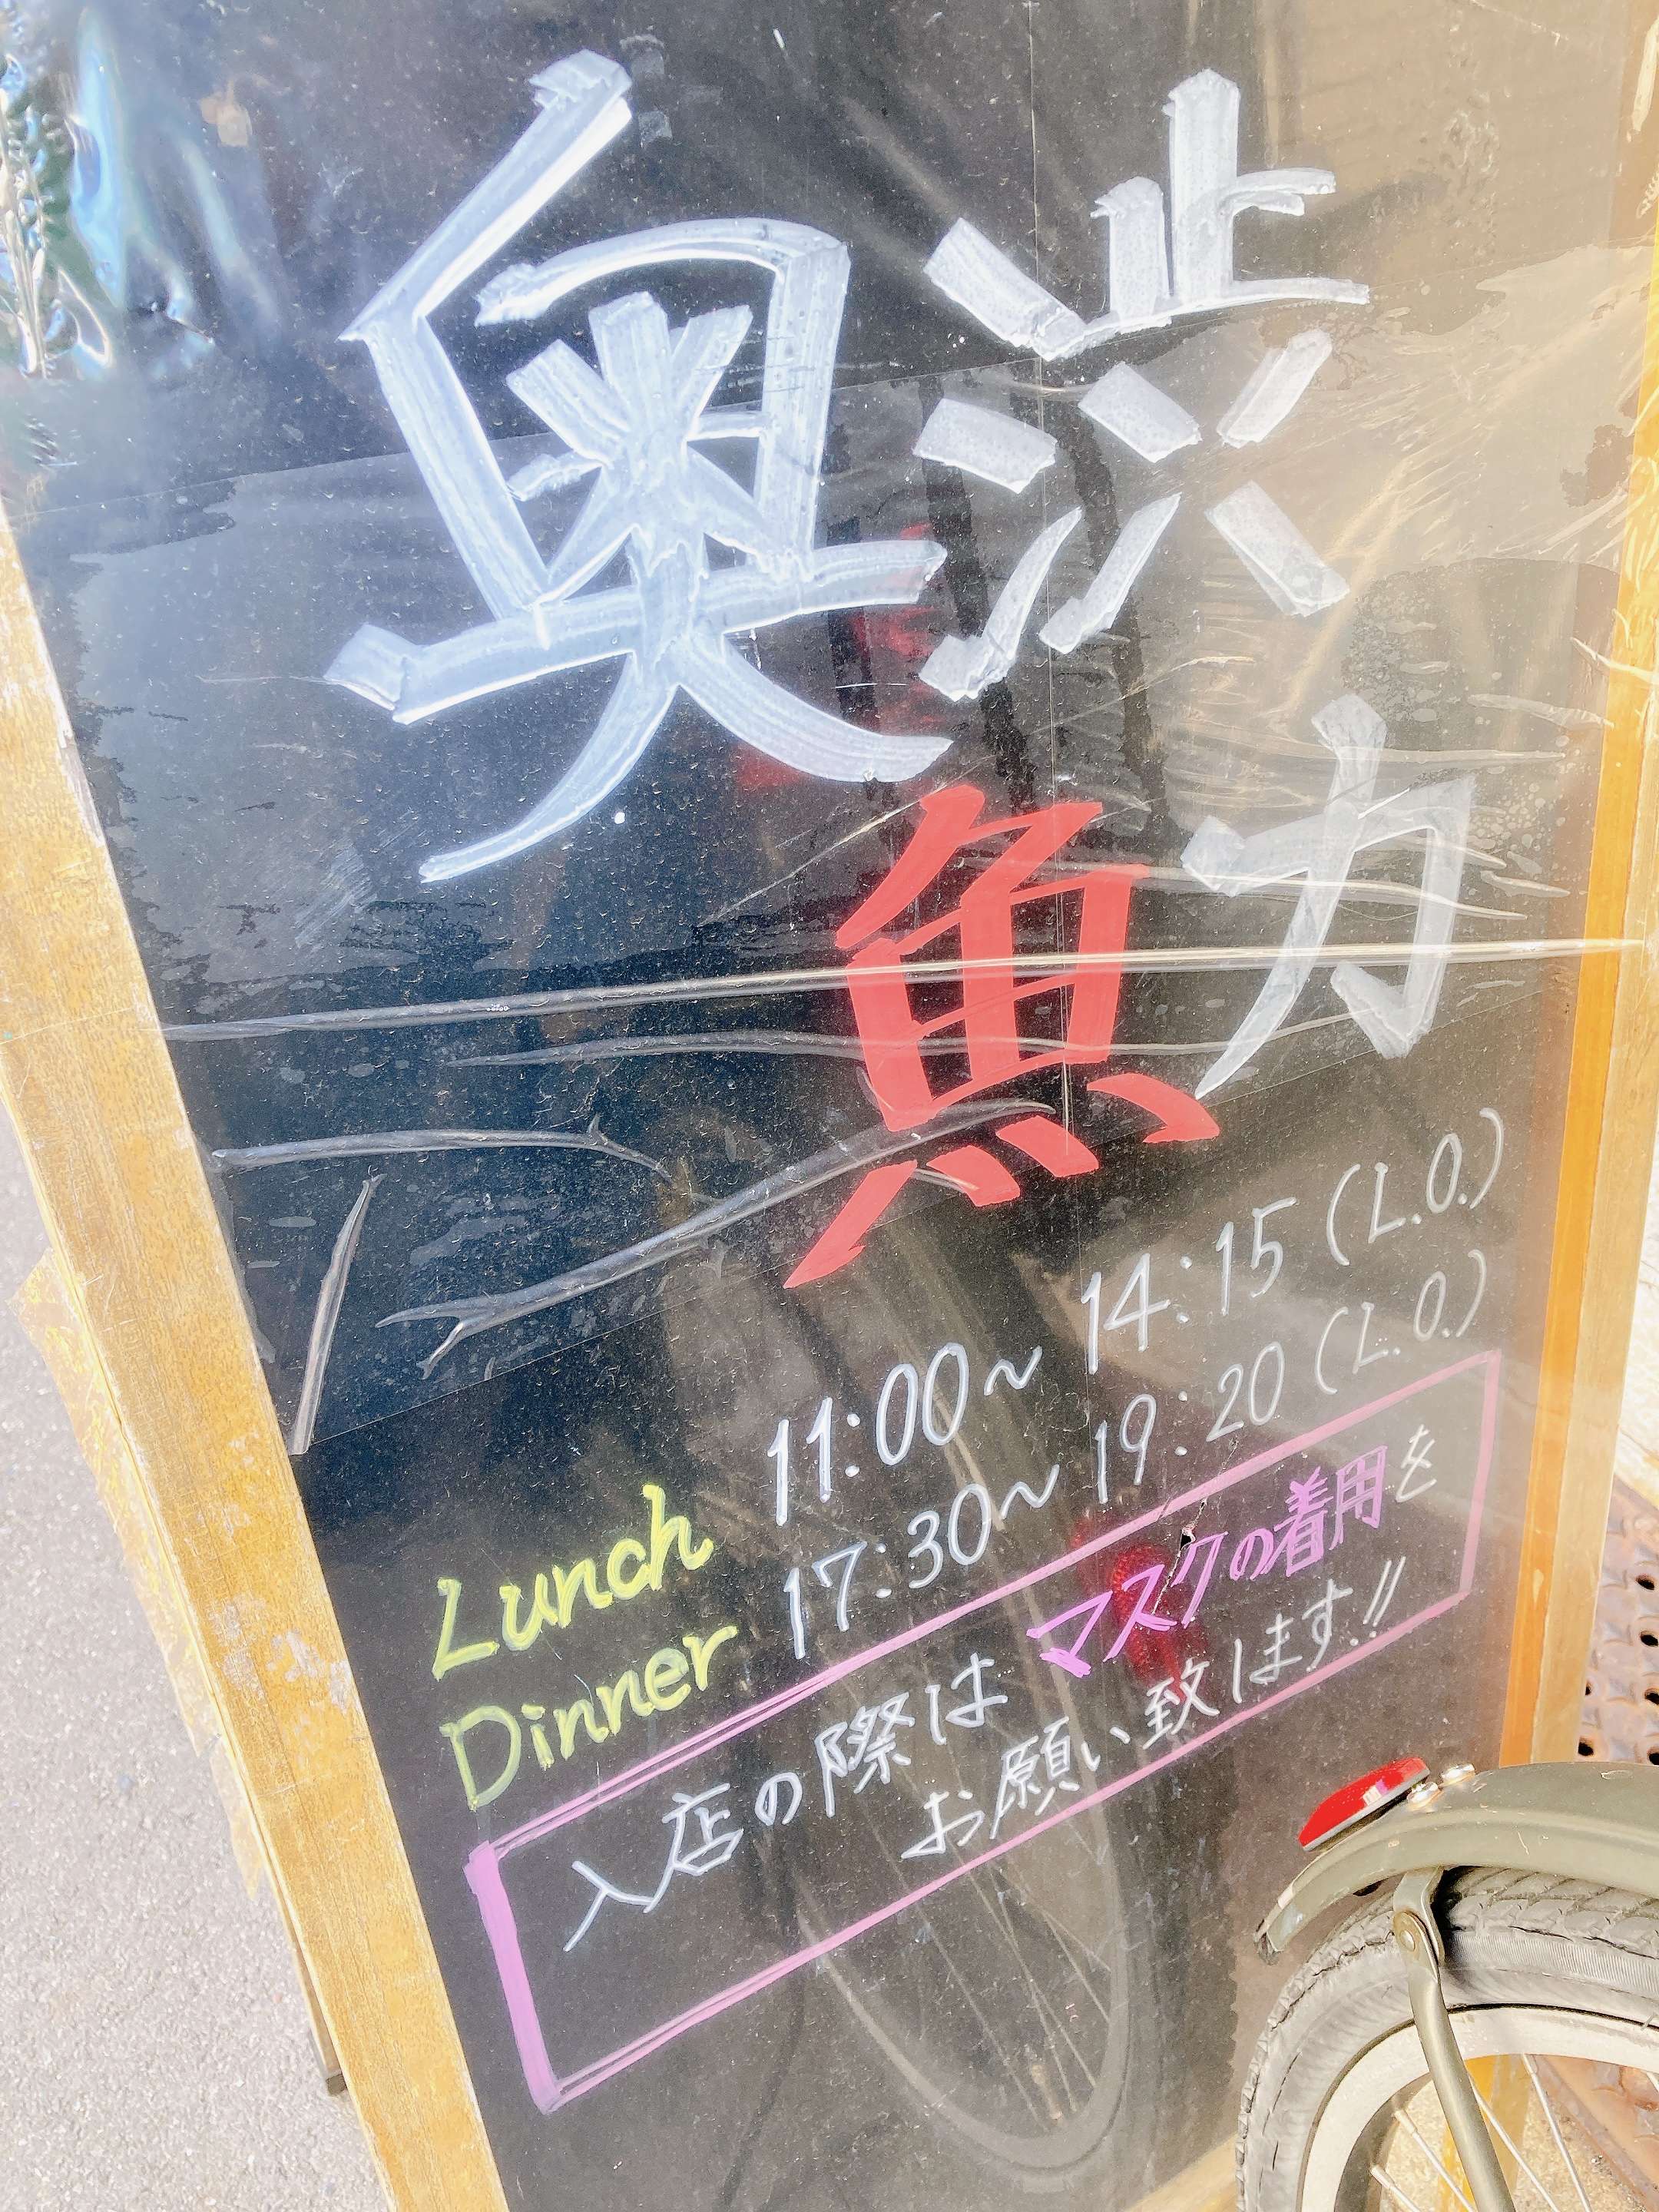 奥渋
魚力
Lunch 11:00~14:15(L.O.)
Dinner 17:30~19:20(L.O.)
入店の際はマスクの着用を
お願い致します!!